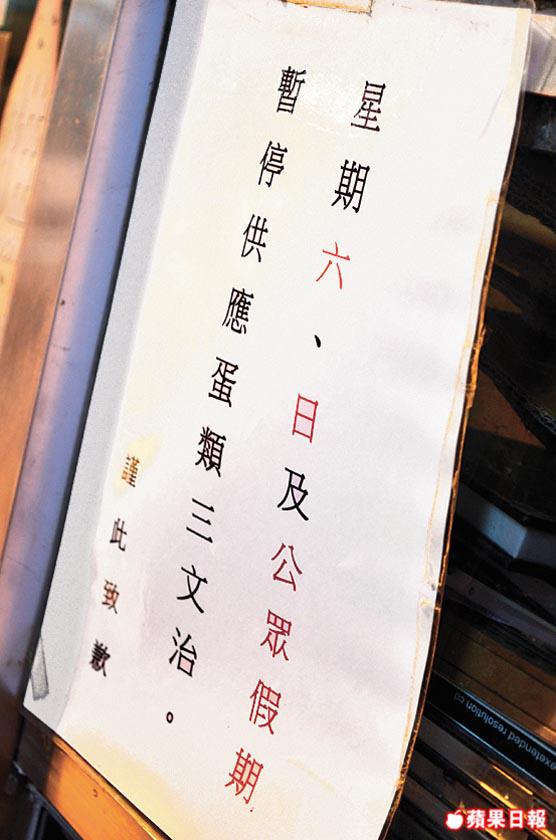 星期六、日及公眾假期
暫停供應蛋類三文治。
謹此致歉
extetended resolution cd
蘋果日報